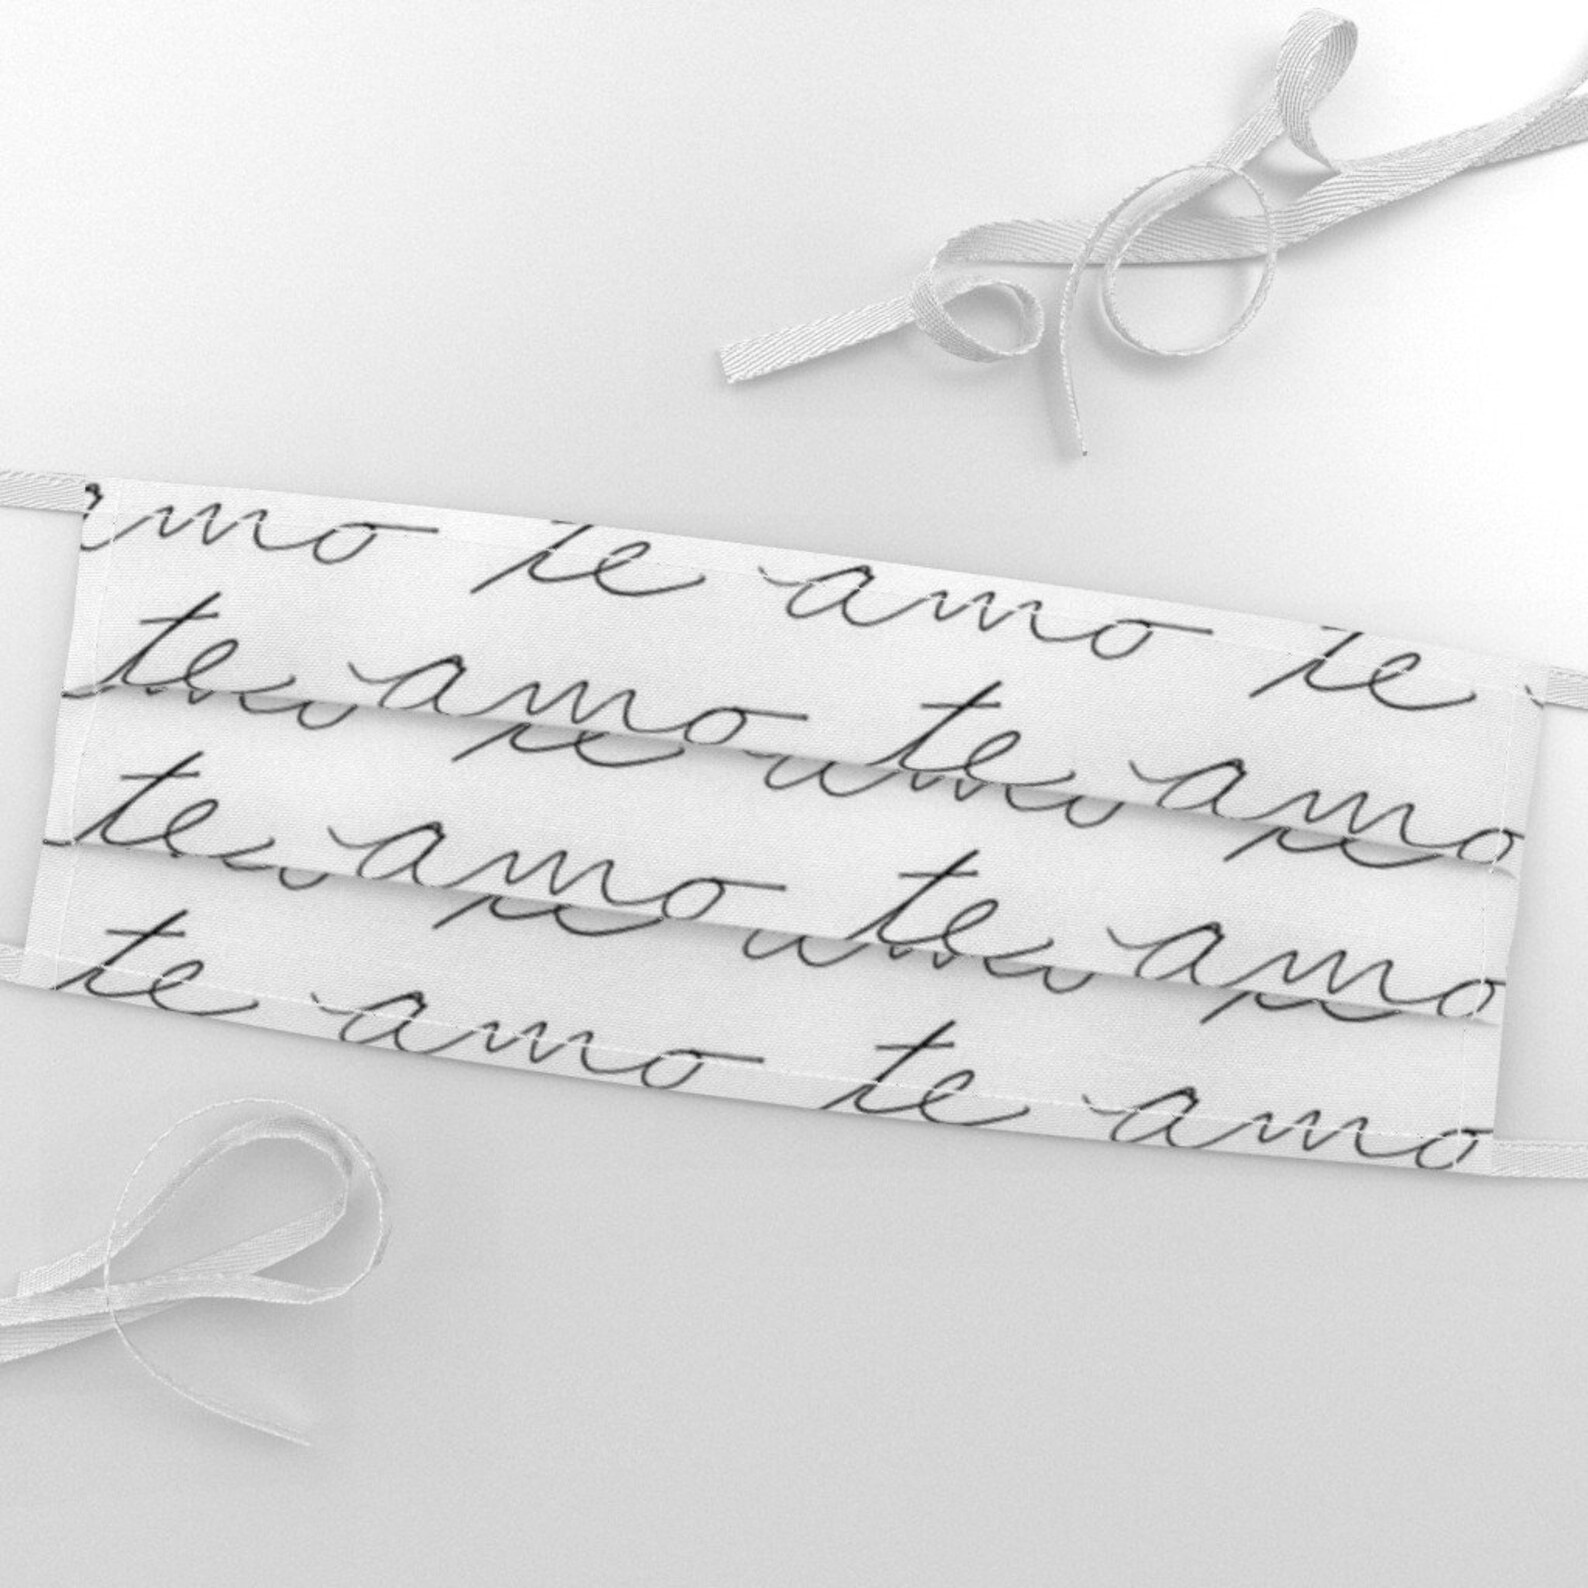 amo te amo te
te amo te amo
te amo te amo
te amo te amo